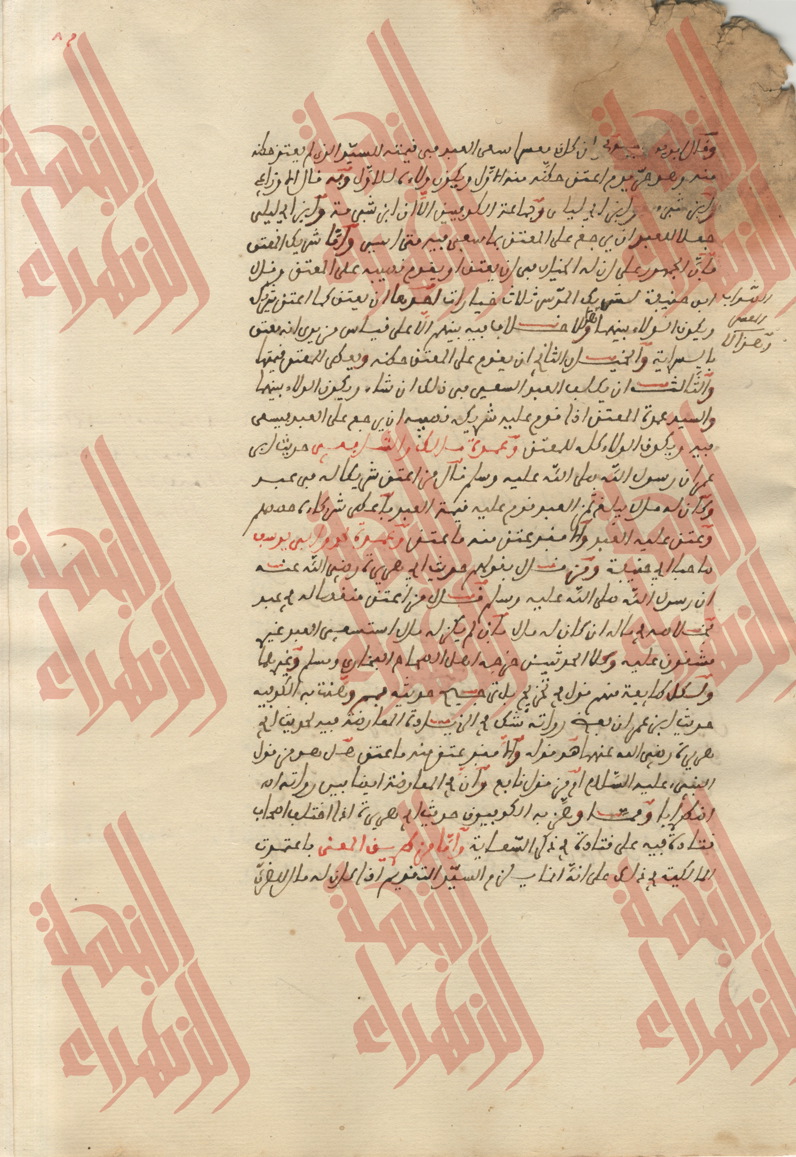 ٨م
وقال ابو يوسف ومحمد ان كان معسرا سعى العبد في قيمته للسيد الذي لم يعتق حظه
منه وهو حر يوم اعتق حظه منه الاول ويكون ولاؤه للاول وبه قال الاوزاعي
وابن شبرمة وابن ابي ليلى وجماعة الكوفيين الا ان ابن شبرمة وابن ابي ليلى
جعلا للعبد ان يرجع على المعتق بما سعى فيه متى ايسر وأما شريك المعتق
فان الجمهور على ان له الخيار في ان يعتق او يقوم نصيبه على المعتق وقال
ابو حنيفة لشريك الموسر ثلاث خيارات احدها ان يعتق كما اعتق شريكه
ويكون الولاء بينهما وهذا لا خلاف فيه بينهم
والخيار الثاني ان يقوم على المعتق حظه ويعطى المعتق قيمتها
والثالث ان يكلف العبد السعي في ذلك ان شاء ويكون الولاء بينهما
والسيد عبده المعتق اذا قوم عليه شريكه نصيبه ان يرجع على العبد فيسعى
فيه ويكون الولاء كله للمعتق وعمدة مالك والشافعي حديث ابن
عمر ان رسول الله صلى الله عليه وسلم قال من اعتق شركا له في عبد
وكان له مال يبلغ ثمن العبد قوم عليه قيمة العبد فأعطى شركاءه حصصهم
وعتق عليه العبد والا فقد عتق منه ما عتق وعمدة محمد وابي يوسف
صاحبا ابي حنيفة ومن قال بقولهم حديث ابي هريرة رضي الله عنه
ان رسول الله صلى الله عليه وسلم قال من اعتق شقصا له في عبد
فخلاصه في ماله ان كان له مال فان لم يكن له مال استسعى العبد غير
مشقوق عليه وكلا الحديثين خرجه اهل الصحيح البخاري ومسلم وغيرهما
ولكل طايفة منهم قول في ترجيح حديثه فمما وهنت به الكوفية
حديث ابن عمر ان بعض رواته شك في الزيادة المعارضة فيه لحديث ابي
هريرة رضي الله عنهما هو قوله والا فقد عتق منه ما عتق هل هو من قول
النبيء عليه السلام او من قول نافع وان في المعارضة ايضا بين رواته
اضطرابا ومما وهن به الكوفيون حديث ابي هريرة انه اختلف اصحاب
قتادة فيه على قتادة في ذكر السعاية وأما من طريق المعنى فاعتمدت
المالكية في ذلك على انه انما لزم السيد التقويم اذا كان له مال للضرر
النجمة
الزهراء